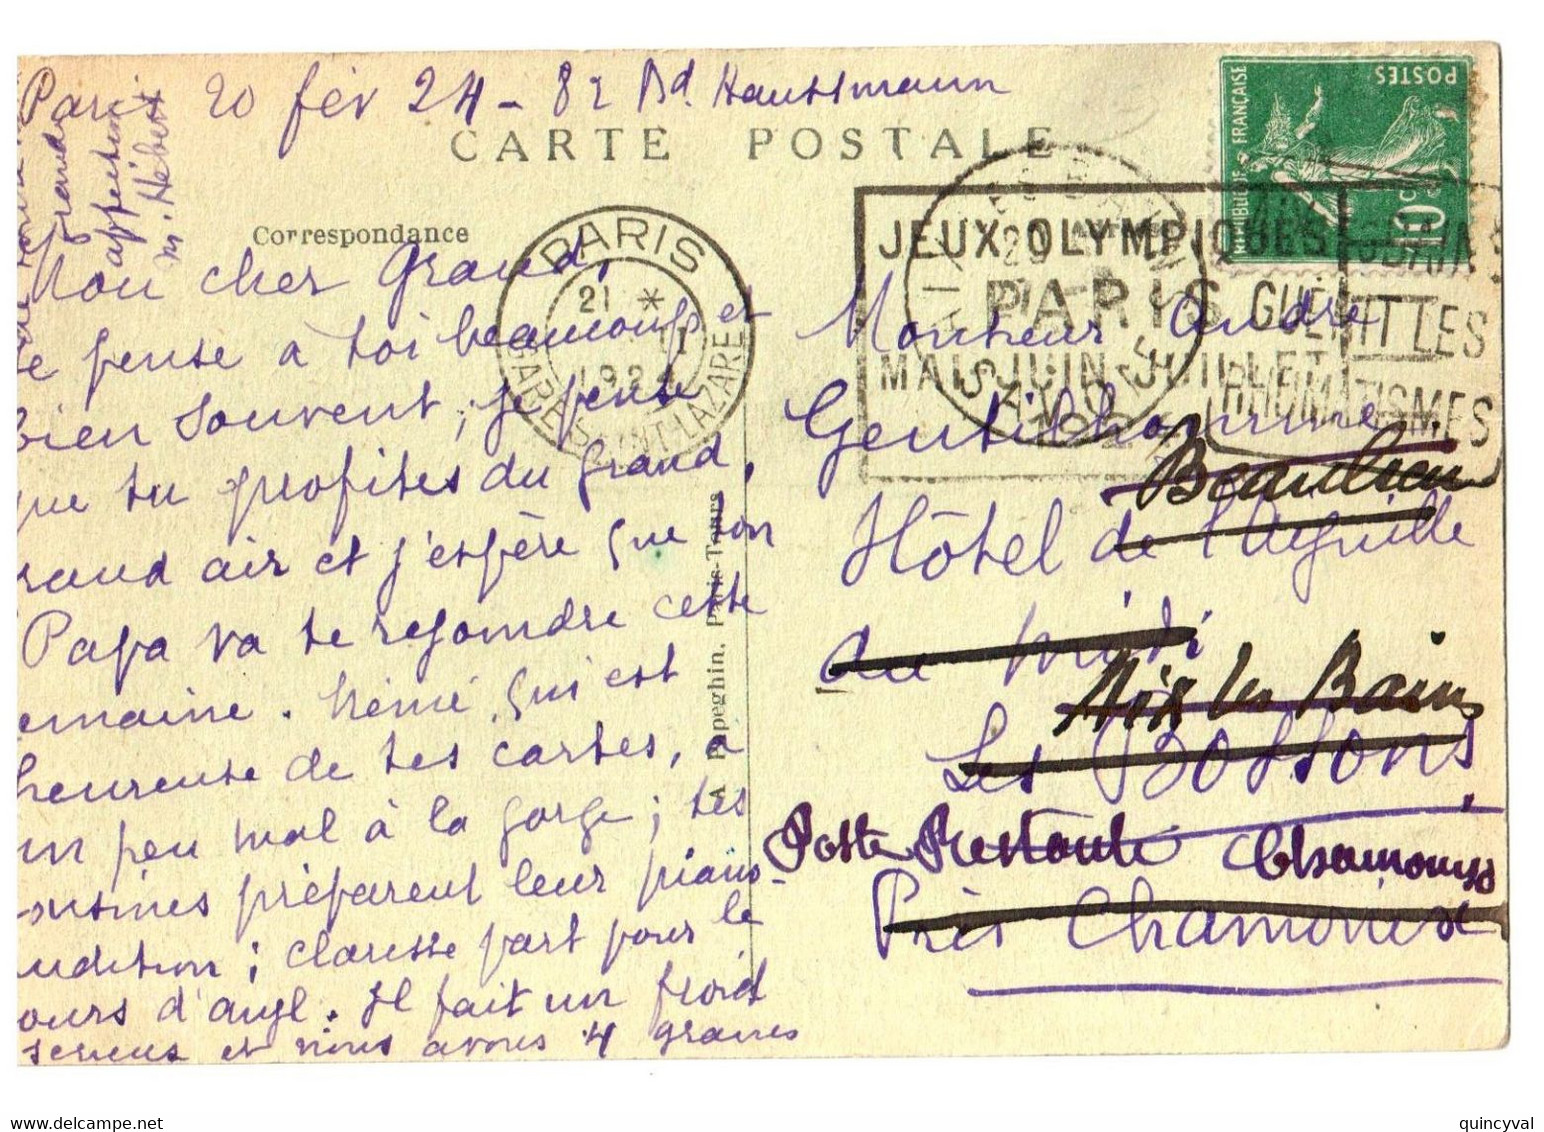 Paris 20 fév 24 - 82 Bd. Haussmann
CARTE POSTALE
Correspondance
grande
affection
M. Hébert
Mon cher Grand,
Je pense à toi beaucoup et
bien souvent ; je pense
que tu profites du grand,
grand air et j'espère que ton
Papa va te rejoindre cette
semaine. Mémé, qui est
heureuse de tes cartes, a
un peu mal à la gorge ; tes
cousines préparent leur piano-
audition ; Clarisse part pour le
cours d'angl. Il fait un froid
serieux et nous avons 4 graves
A. Papeghin, Paris-Tours
PARIS
21 *
1924
GARE SAINT-LAZARE
JEUX OLYMPIQUES
PARIS
MAI JUIN JUILLET
1924
AIX LES BAINS
SAVOIE
GUÉRIT LES
RHUMATISMES
POSTES
RÉPUBLIQUE FRANÇAISE
10 c
Monsieur André
Gentilhomme
Beaulieu
Hôtel de l'Aiguille
du Midi
Aix les Bains
Les Bossons
Poste Restante Chamonix
Près Chamonix
quincyval